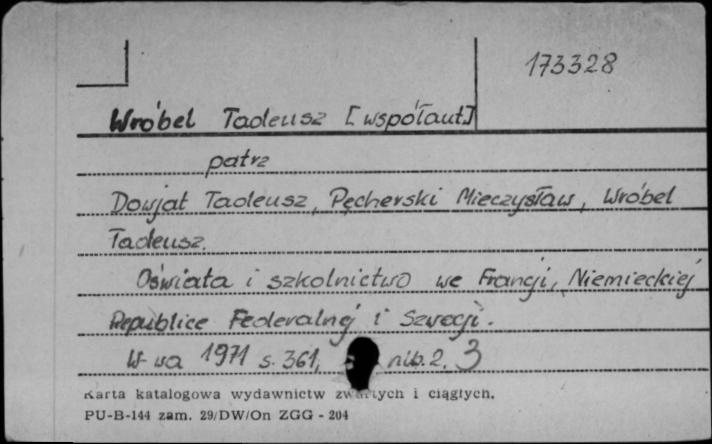 173328
Wróbel Tadeusz [współaut]
patrz
Dowjat Tadeusz, Pęcherski Mieczysław, Wróbel
Tadeusz.
Oświata i szkolnictwo we Francji, Niemieckiej
Republice Federalnej i Szwecji.
W-wa 1971 s. 361, nlb. 2. 3
Karta katalogowa wydawnictw zwartych i ciągłych.
PU-B-144 zam. 29/DW/On ZGG - 204